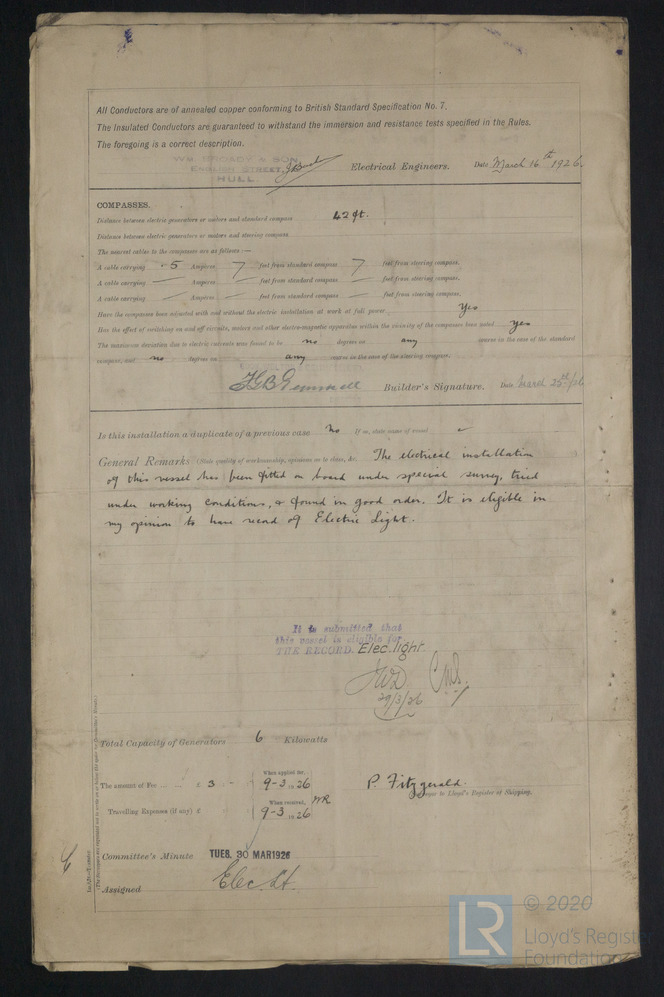 All Conductors are of annealed copper conforming to British Standard Specification No. 7.
The Insulated Conductors are guaranteed to withstand the immersion and resistance tests specified in the Rules.
The foregoing is a correct description.
WM. BROADY & SON,
ENGLISH STREET,
HULL. Electrical Engineers. Date March 16th 1926.
COMPASSES.
Distance between electric generators or motors and standard compass 42 ft.
Distance between electric generators or motors and steering compass
The nearest cables to the compasses are as follows:—
A cable carrying .5 Amperes 7 feet from standard compass 7 feet from steering compass.
A cable carrying — Amperes — feet from standard compass — feet from steering compass.
A cable carrying — Amperes — feet from standard compass — feet from steering compass.
Have the compasses been adjusted with and without the electric installation at work at full power Yes
Has the effect of switching on and off circuits, motors and other electro-magnetic apparatus within the vicinity of the compasses been noted yes
The maximum deviation due to electric currents was found to be no degrees on any course in the case of the standard
compass, and no degrees on any course in the case of the steering compass.
Builder's Signature. Date March 25th/26
Is this installation a duplicate of a previous case No If so, state name of vessel
General Remarks (State quality of workmanship, opinions as to class, &c. The electrical installation
of this vessel has been fitted on board under special survey, tried
under working conditions, & found in good order. It is eligible in
my opinion to have record of Electric Light.
It is submitted that
this vessel is eligible for
THE RECORD. Elec. light.
29/3/26
Total Capacity of Generators 6 Kilowatts
The amount of Fee £ 3 : - When applied for, 9-3-1926
P. Fitzgerald.
Surveyor to Lloyd's Register of Shipping.
Travelling Expenses (if any) £ When received, 9-3-1926
Committee's Minute TUES. 30 MAR 1926
Assigned Elec. Lt.
LR © 2020
Lloyd's Register
Foundation